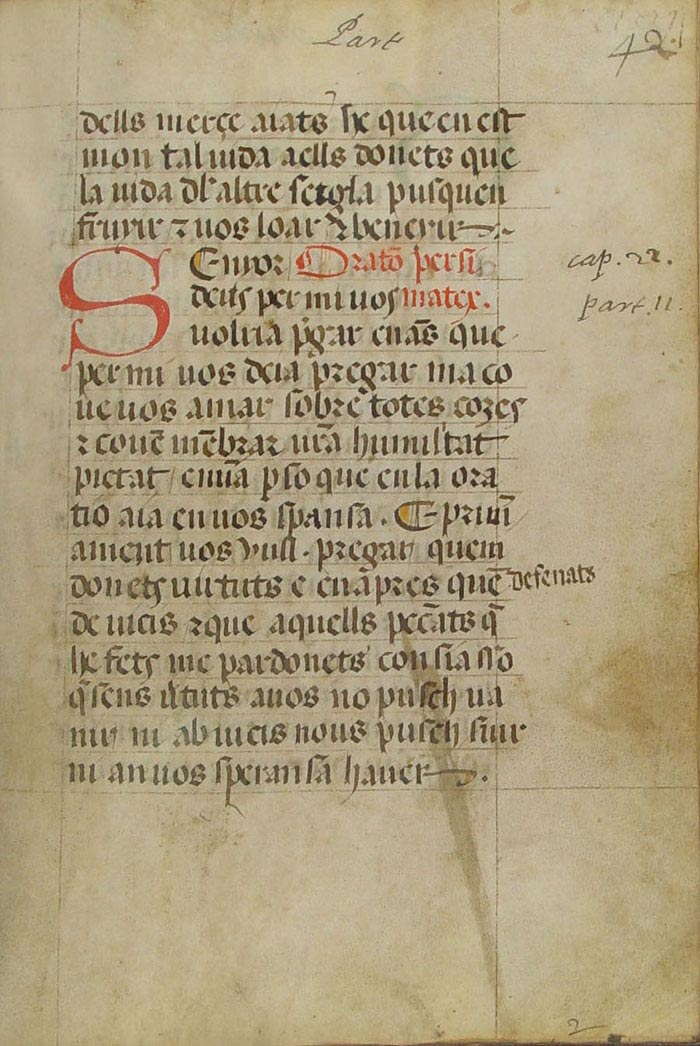 Part
42.
dells merçe aiats he que en est
mon tal uida aells donets que
la uida dl'altre setgla pusquen
seruir ⁊ uos loar ⁊ beneir
Senyor Oratō per si
deits per mi uos matex. cap. 22.
uolria p̃gar enās que part. 11.
per mi uos deia pregar ma co
ue uos amar sobre totes cozes
⁊ couē mēbrar ur̄a humilitat
pietat em̄a pso que en la ora
tio aia en uos spansa. E prim̄
ament uos vull pregar quem
donets uirtuts e enāpres quē defenats
de uicis ⁊ que aquells pecats q̄
he fets me pardonets con sia sso
q̄ sens u̓tuts a uos no pusch ua
nir ni ab uicis nous pusch s̓uir
ni an uos speransa hauer.
2